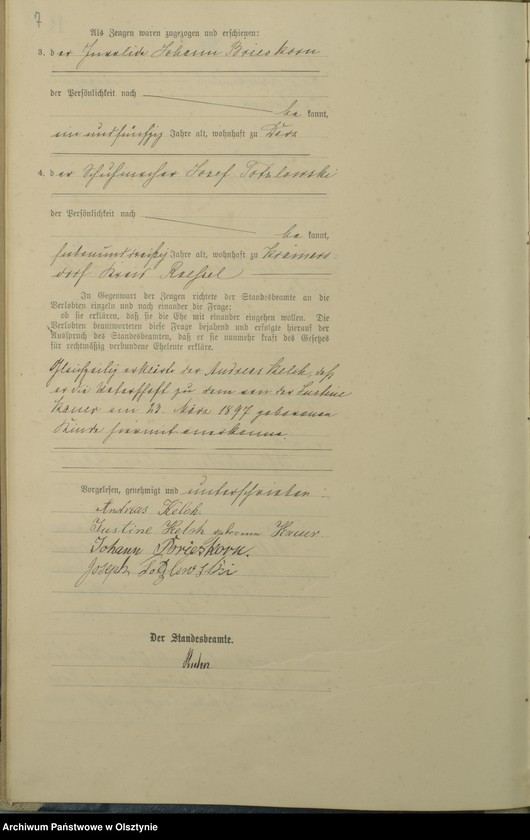 7
Als Zeugen waren zugezogen und erschienen:
3. der Invalide Johann Brieskorn
der Persönlichkeit nach
be kannt,
ein und fünfzig Jahre alt, wohnhaft zu
4. der Schuhmacher Josef Totzlewski
der Persönlichkeit nach
be kannt,
siebenunddreißig Jahre alt, wohnhaft zu Krämers
dorf Kreis Roessel
In Gegenwart der Zeugen richtete der Standesbeamte an die
Verlobten einzeln und nach einander die Frage:
ob sie erklären, daß sie die Ehe mit einander eingehen wollen. Die
Verlobten beantworteten diese Frage bejahend und erfolgte hierauf der
Ausspruch des Standesbeamten, daß er sie nunmehr kraft des Gesetzes
für rechtmäßig verbundene Eheleute erkläre.
Gleichzeitig erklärte der Andreas Kelch, daß
er die Vaterschaft zu dem von der Justine
Hauer am 23. März 1897 geborenen
Kinde hiermit anerkenne.
Vorgelesen, genehmigt und unterschrieben:
Andreas Kelch
Justine Kelch geborene Hauer
Johann Brieskorn.
Joseph Totzlewski
Der Standesbeamte.
Kuhn
Archiwum Państwowe w Olsztynie